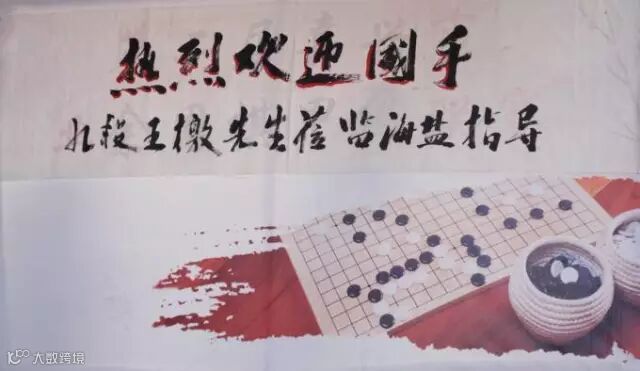 热烈欢迎國手
九段王檄先生莅临海盐指导
大数跨境